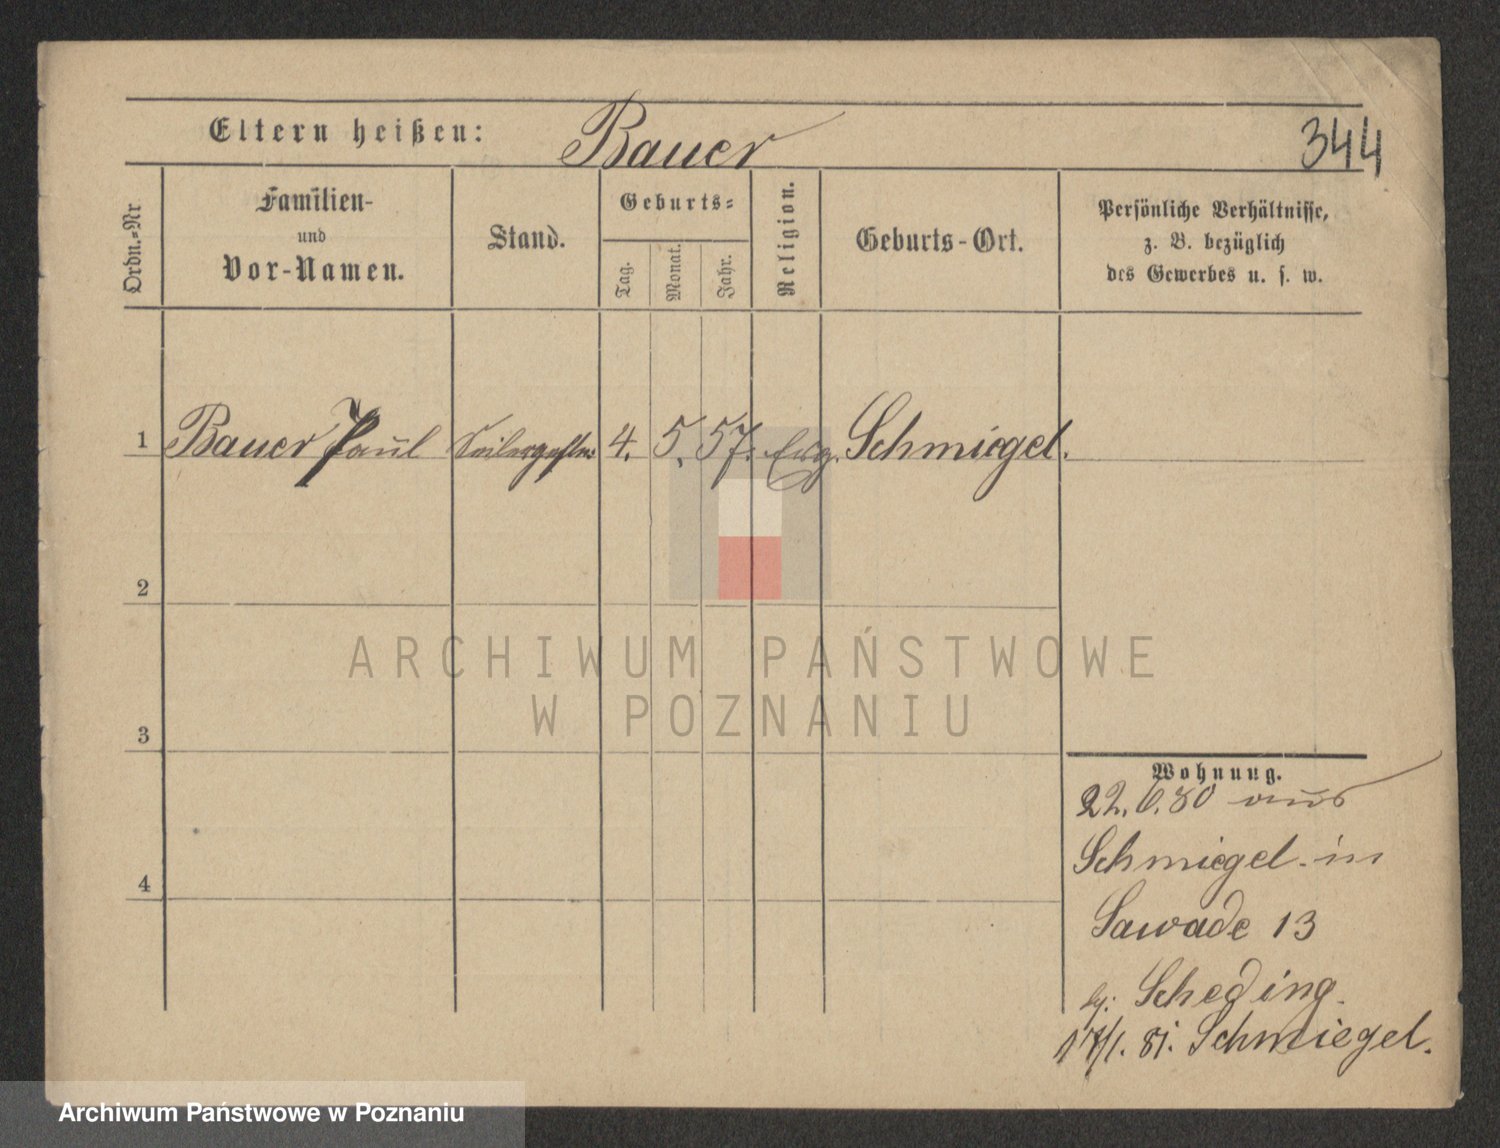 Eltern heißen: Bauer 344
Ordn.=Nr
Familien-
und
Vor-Namen.
Stand.
Geburts=
Tag.
Monat.
Jahr.
Religion.
Geburts-Ort.
Persönliche Verhältnisse,
z. B. bezüglich
des Gewerbes u. s. w.
1 Bauer Paul 4. 5. 57. Evg. Schmiegel.
2
ARCHIWUM PAŃSTWOWE
W POZNANIU
3
Wohnung.
22. 6. 80 aus
Schmiegel in
4
Sawade 13
Scheding.
17/1. 81. Schmiegel.
Archiwum Państwowe w Poznaniu